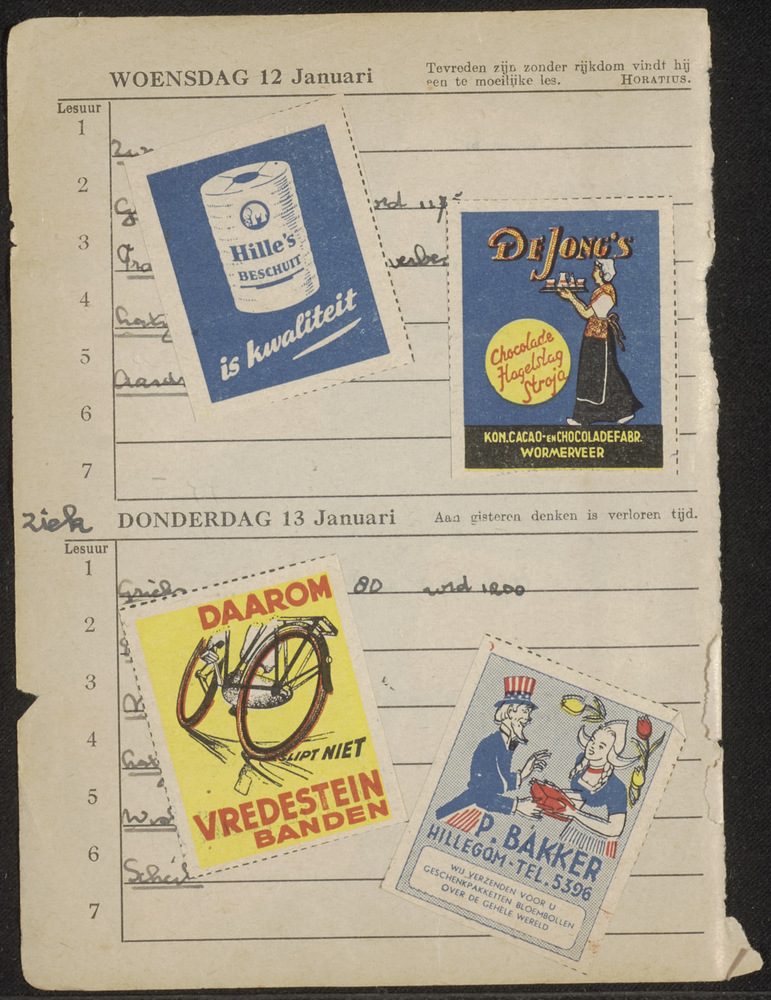 WOENSDAG 12 Januari
Tevreden zijn zonder rijkdom vindt hij
een te moeilijke les. HORATIUS.
Lesuur
1
2
3
4
5
6
7
Hille's
BESCHUIT
is kwaliteit
DE JONG'S
Chocolade
Hagelslag
Stroja
KON.CACAO-EN CHOCOLADEFABR.
WORMERVEER
ziek
DONDERDAG 13 Januari
Aan gisteren denken is verloren tijd.
Lesuur
1
80 wrd 1200
2
3
4
5
6
7
DAAROM
SLIPT NIET
VREDESTEIN
BANDEN
P. BAKKER
HILLEGOM-TEL.5396
WIJ VERZENDEN VOOR U
GESCHENKPAKKETTEN BLOEMBOLLEN
OVER DE GEHELE WERELD